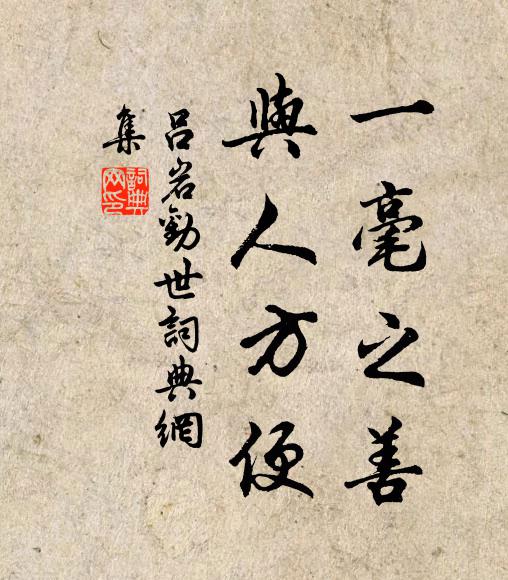 一毫之善
與人方便
吕岩勸世詞典網
集
詞典網印